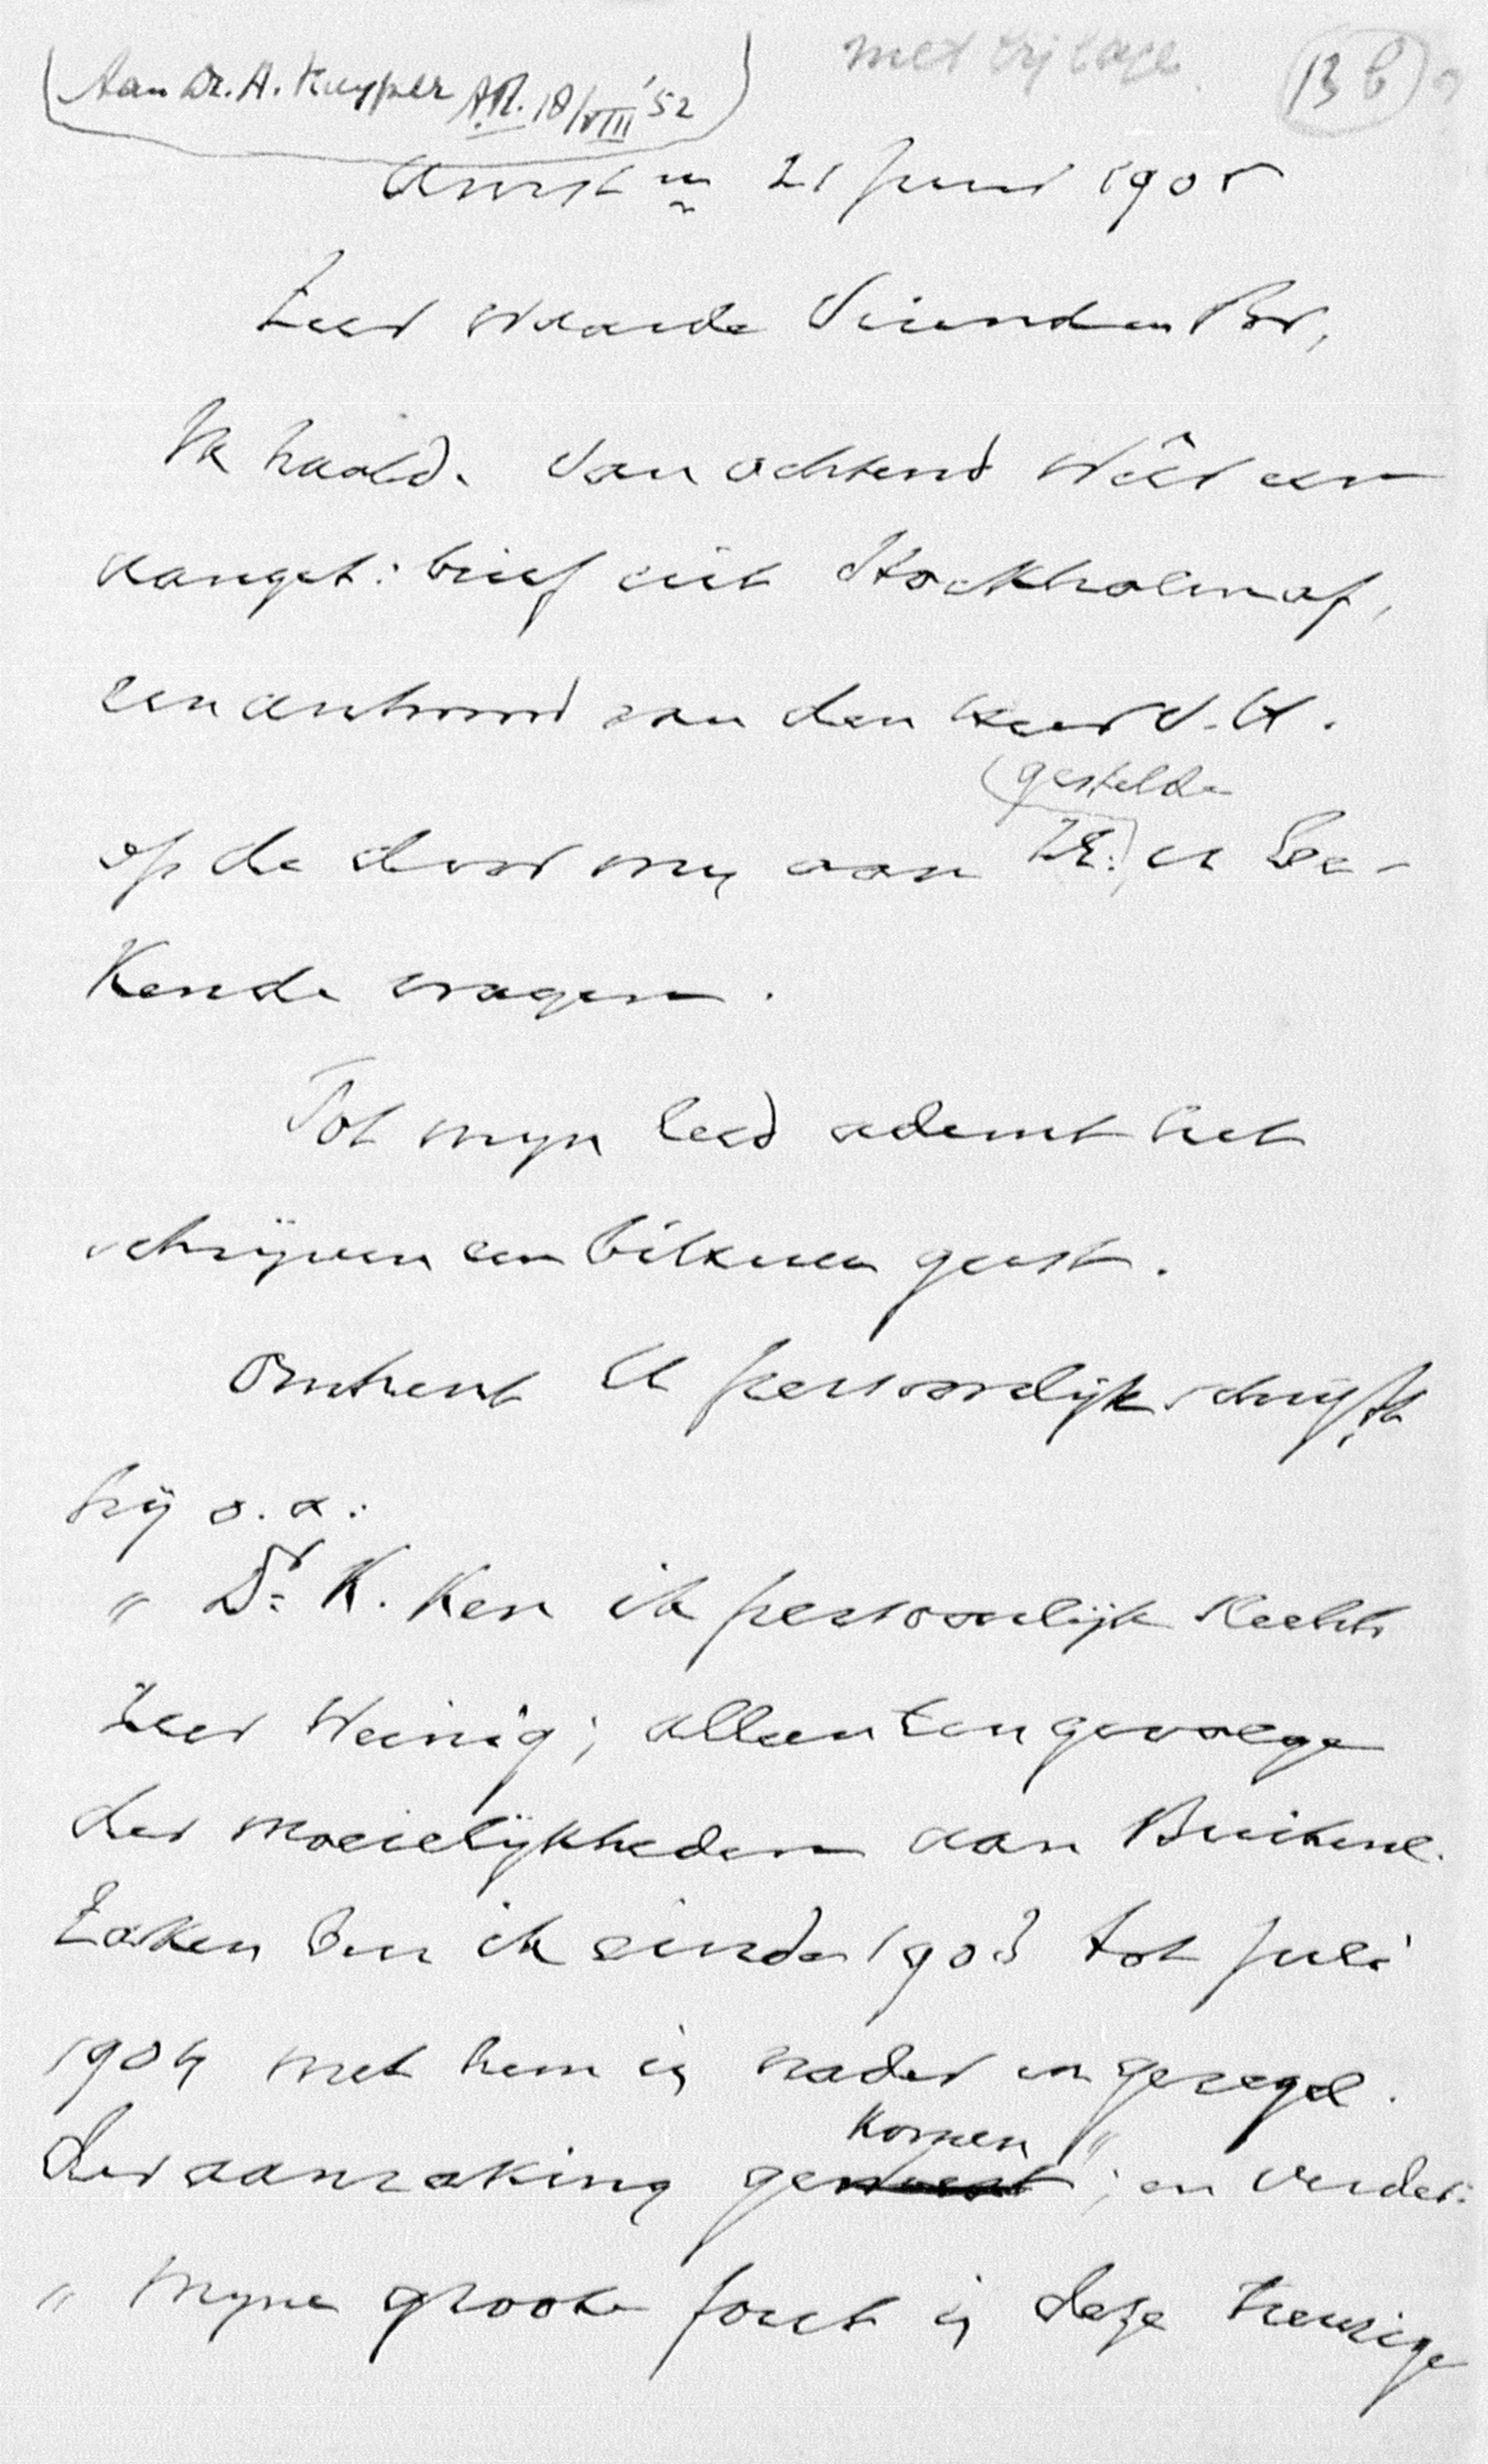 (Aan Dr. A. Kuyper A.R. 18/VIII '52)
met bijlage
13 b
Amst m 21 Juni 1905
Zeer waarde Vriend en Br,
Ik haalde van ochtend wéér een
aanget: brief uit Stockholm af,
een antwoord van den heer v. H.
gestelde
op de door my aan ZE: U be-
kende vragen.
Tot myn leed ademt het
schrijven een bitteren geest.
Omtrent U persoonlijk schrijft
hij o.a:
„ Dr K. ken ik persoonlijk slechts
zeer weinig; alleen tengevolge
der moeielijkheden aan Buitenl.
Zaken ben ik einde 1903 tot Juli
1904 met hem in nader en geregel.
komen "
der aanraking ge ; en verder:
„ Myne groote fout in deze treurige